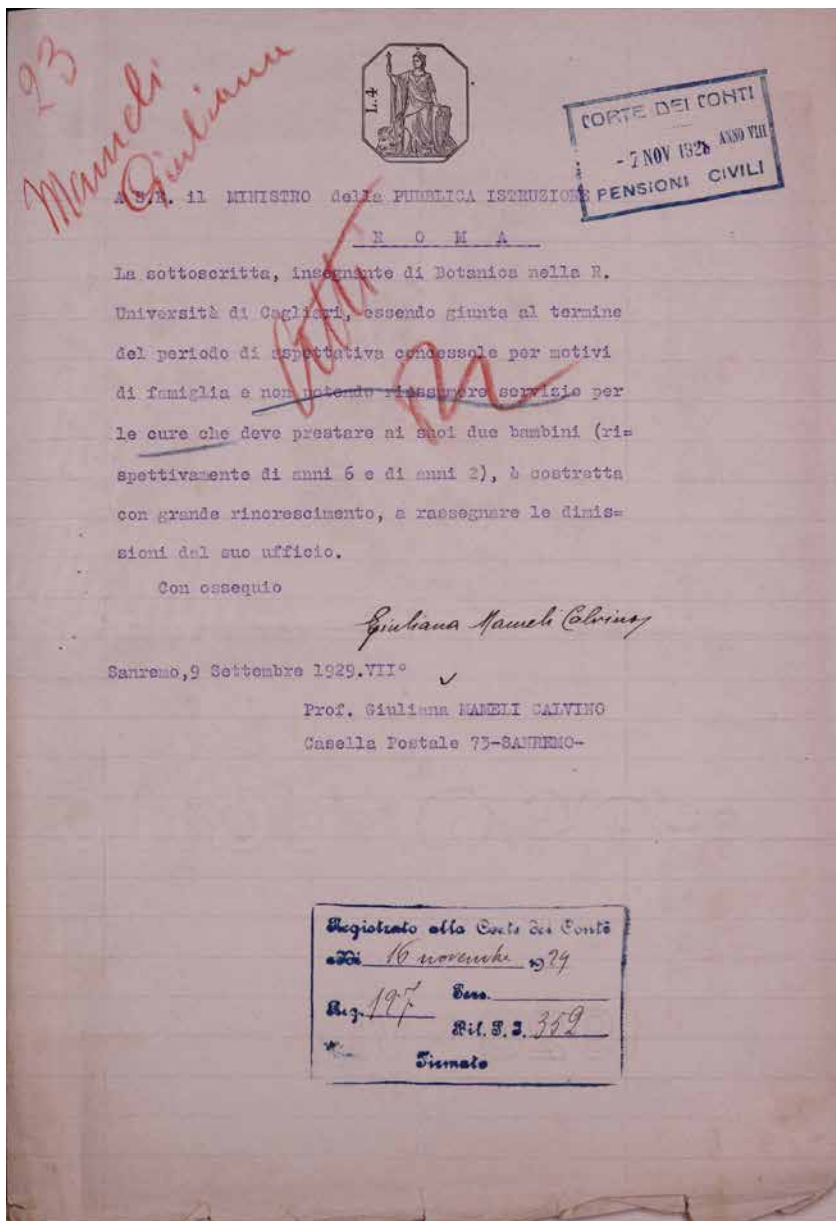 23
Mameli
Giuliana
L.4
CORTE DEI CONTI
- 7 NOV 192 ANNO VIII
PENSIONI CIVILI
A S.E. il MINISTRO della PUBBLICA ISTRUZIONE
R O M A
La sottoscritta, insegnante di Botanica nella R.
Università di Cagliari, essendo giunta al termine
del periodo di aspettativa concessole per motivi
di famiglia e non potendo riassumere servizio per
le cure che deve prestare ai suoi due bambini (ri=
spettivamente di anni 6 e di anni 2), è costretta
con grande rincrescimento, a rassegnare le dimis=
sioni dal suo ufficio.
Con ossequio
Giuliana Mameli Calvino
Sanremo,9 Settembre 1929.VII°
Prof. Giuliana MAMELI CALVINO
Casella Postale 73-SANREMO-
Registrato alla Corte dei Conti
addì 16 novembre 1929
Reg. 197
Ril. P. I. 352
Firmato